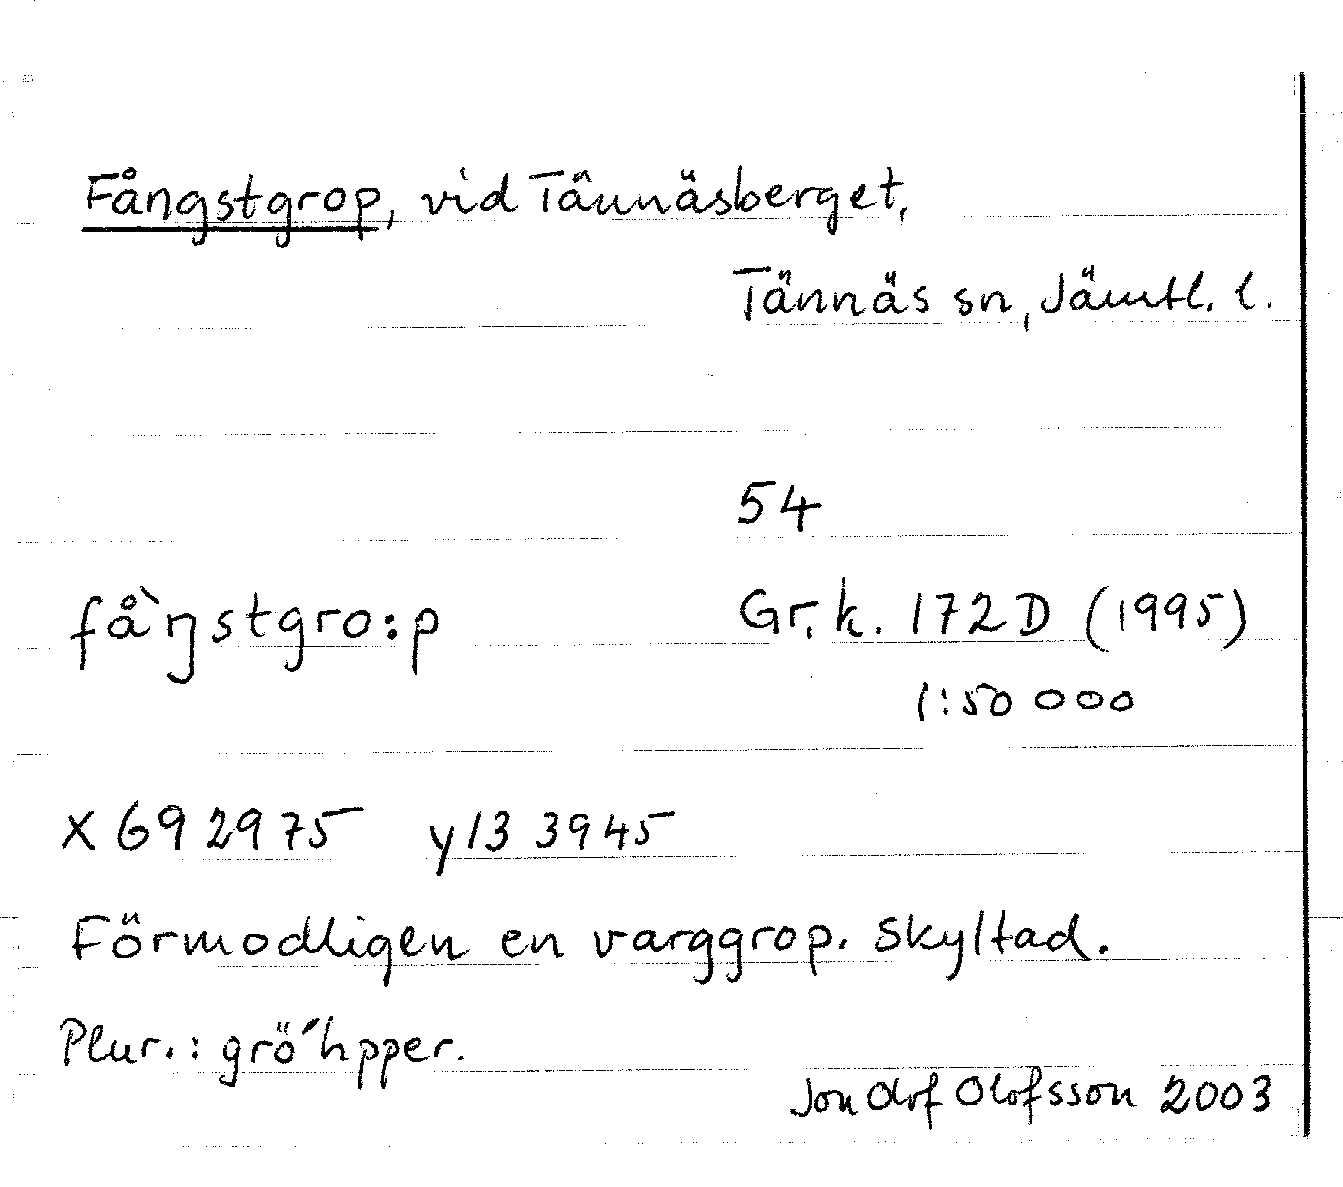 Fångstgrop, vid Tännäsberget,
Tännäs sn, Jämtl. l.
54
få`ŋstgro:p
Gr. k. 172D (1995)
1:50 000
X 69 2975 y 13 3945
Förmodligen en varggrop. Skyltad.
Plur.: grö´hpper.
Jon Olof Olofsson 2003